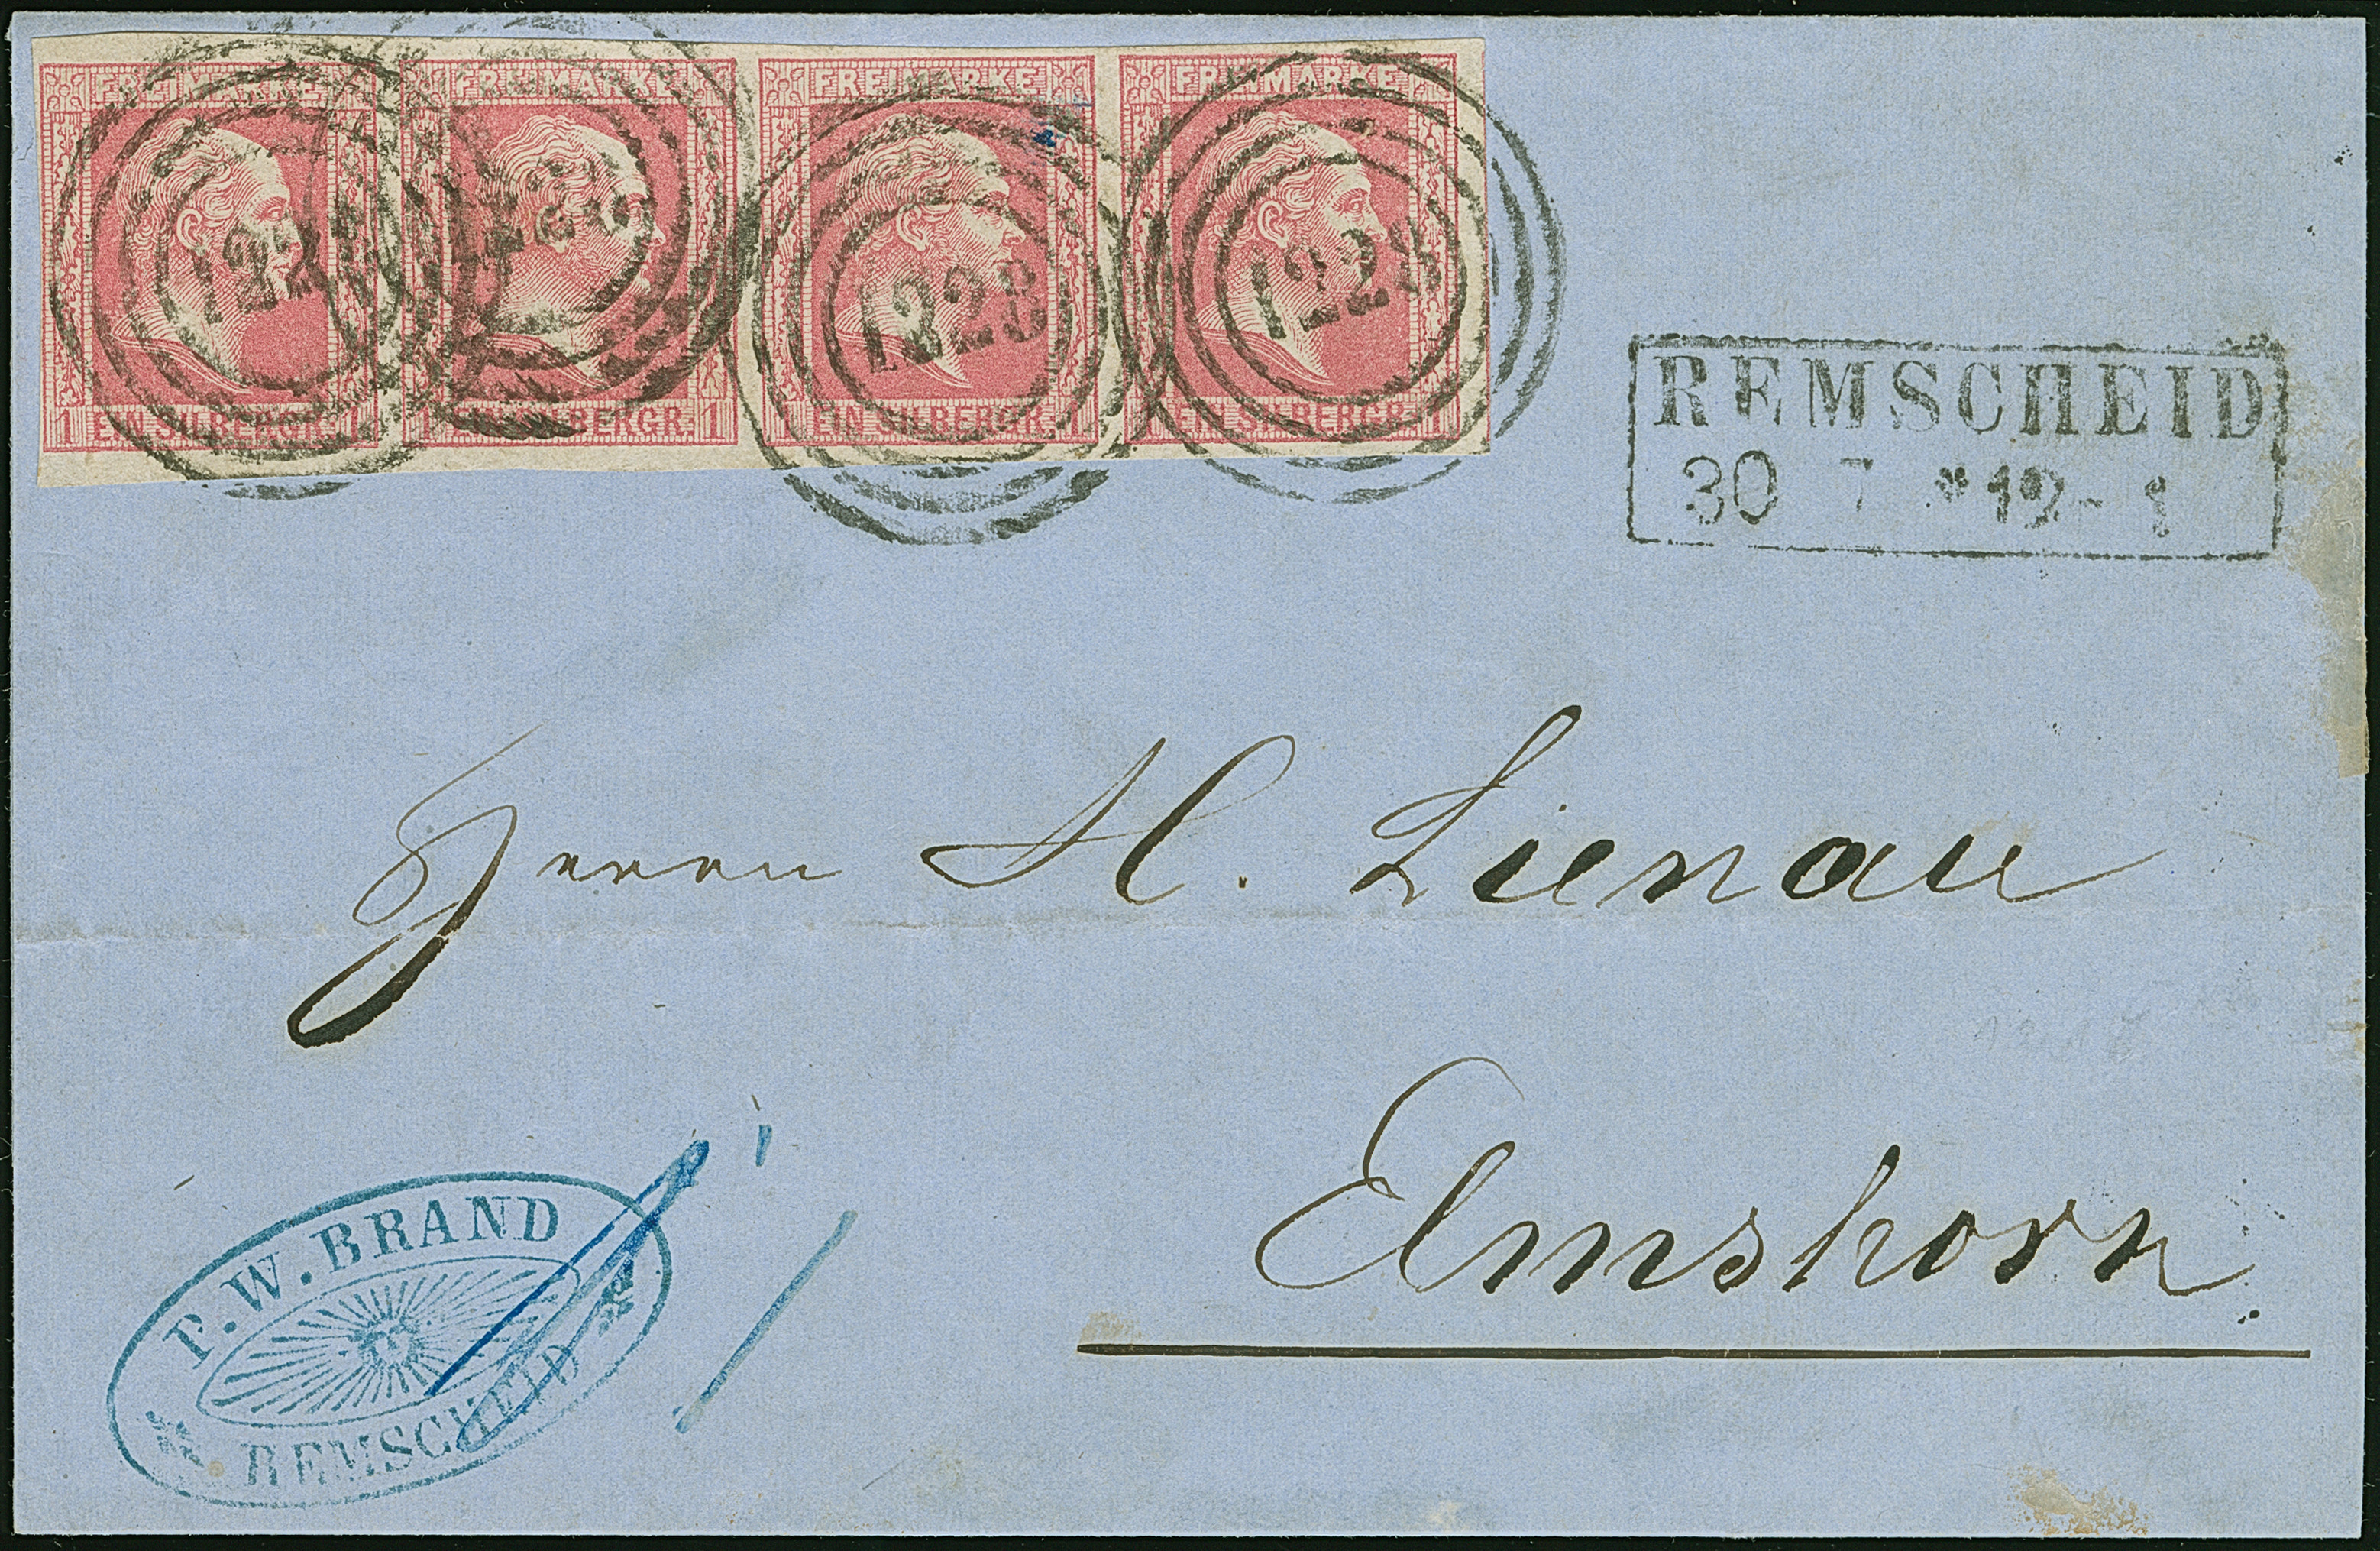 FREIMARKE FREIMARKE FREIMARKE FREIMARKE
1228 1228 1228
1 EIN SILBERGR. 1 1 EIN SILBERGR. 1 EIN SILBERGR. 1 1 EIN SILBERGR. 1
REMSCHEID
30 7 * 12 - 1
Herrn H. Lienau
Elmshorn.
P. W. BRAND
REMSCHEID
1